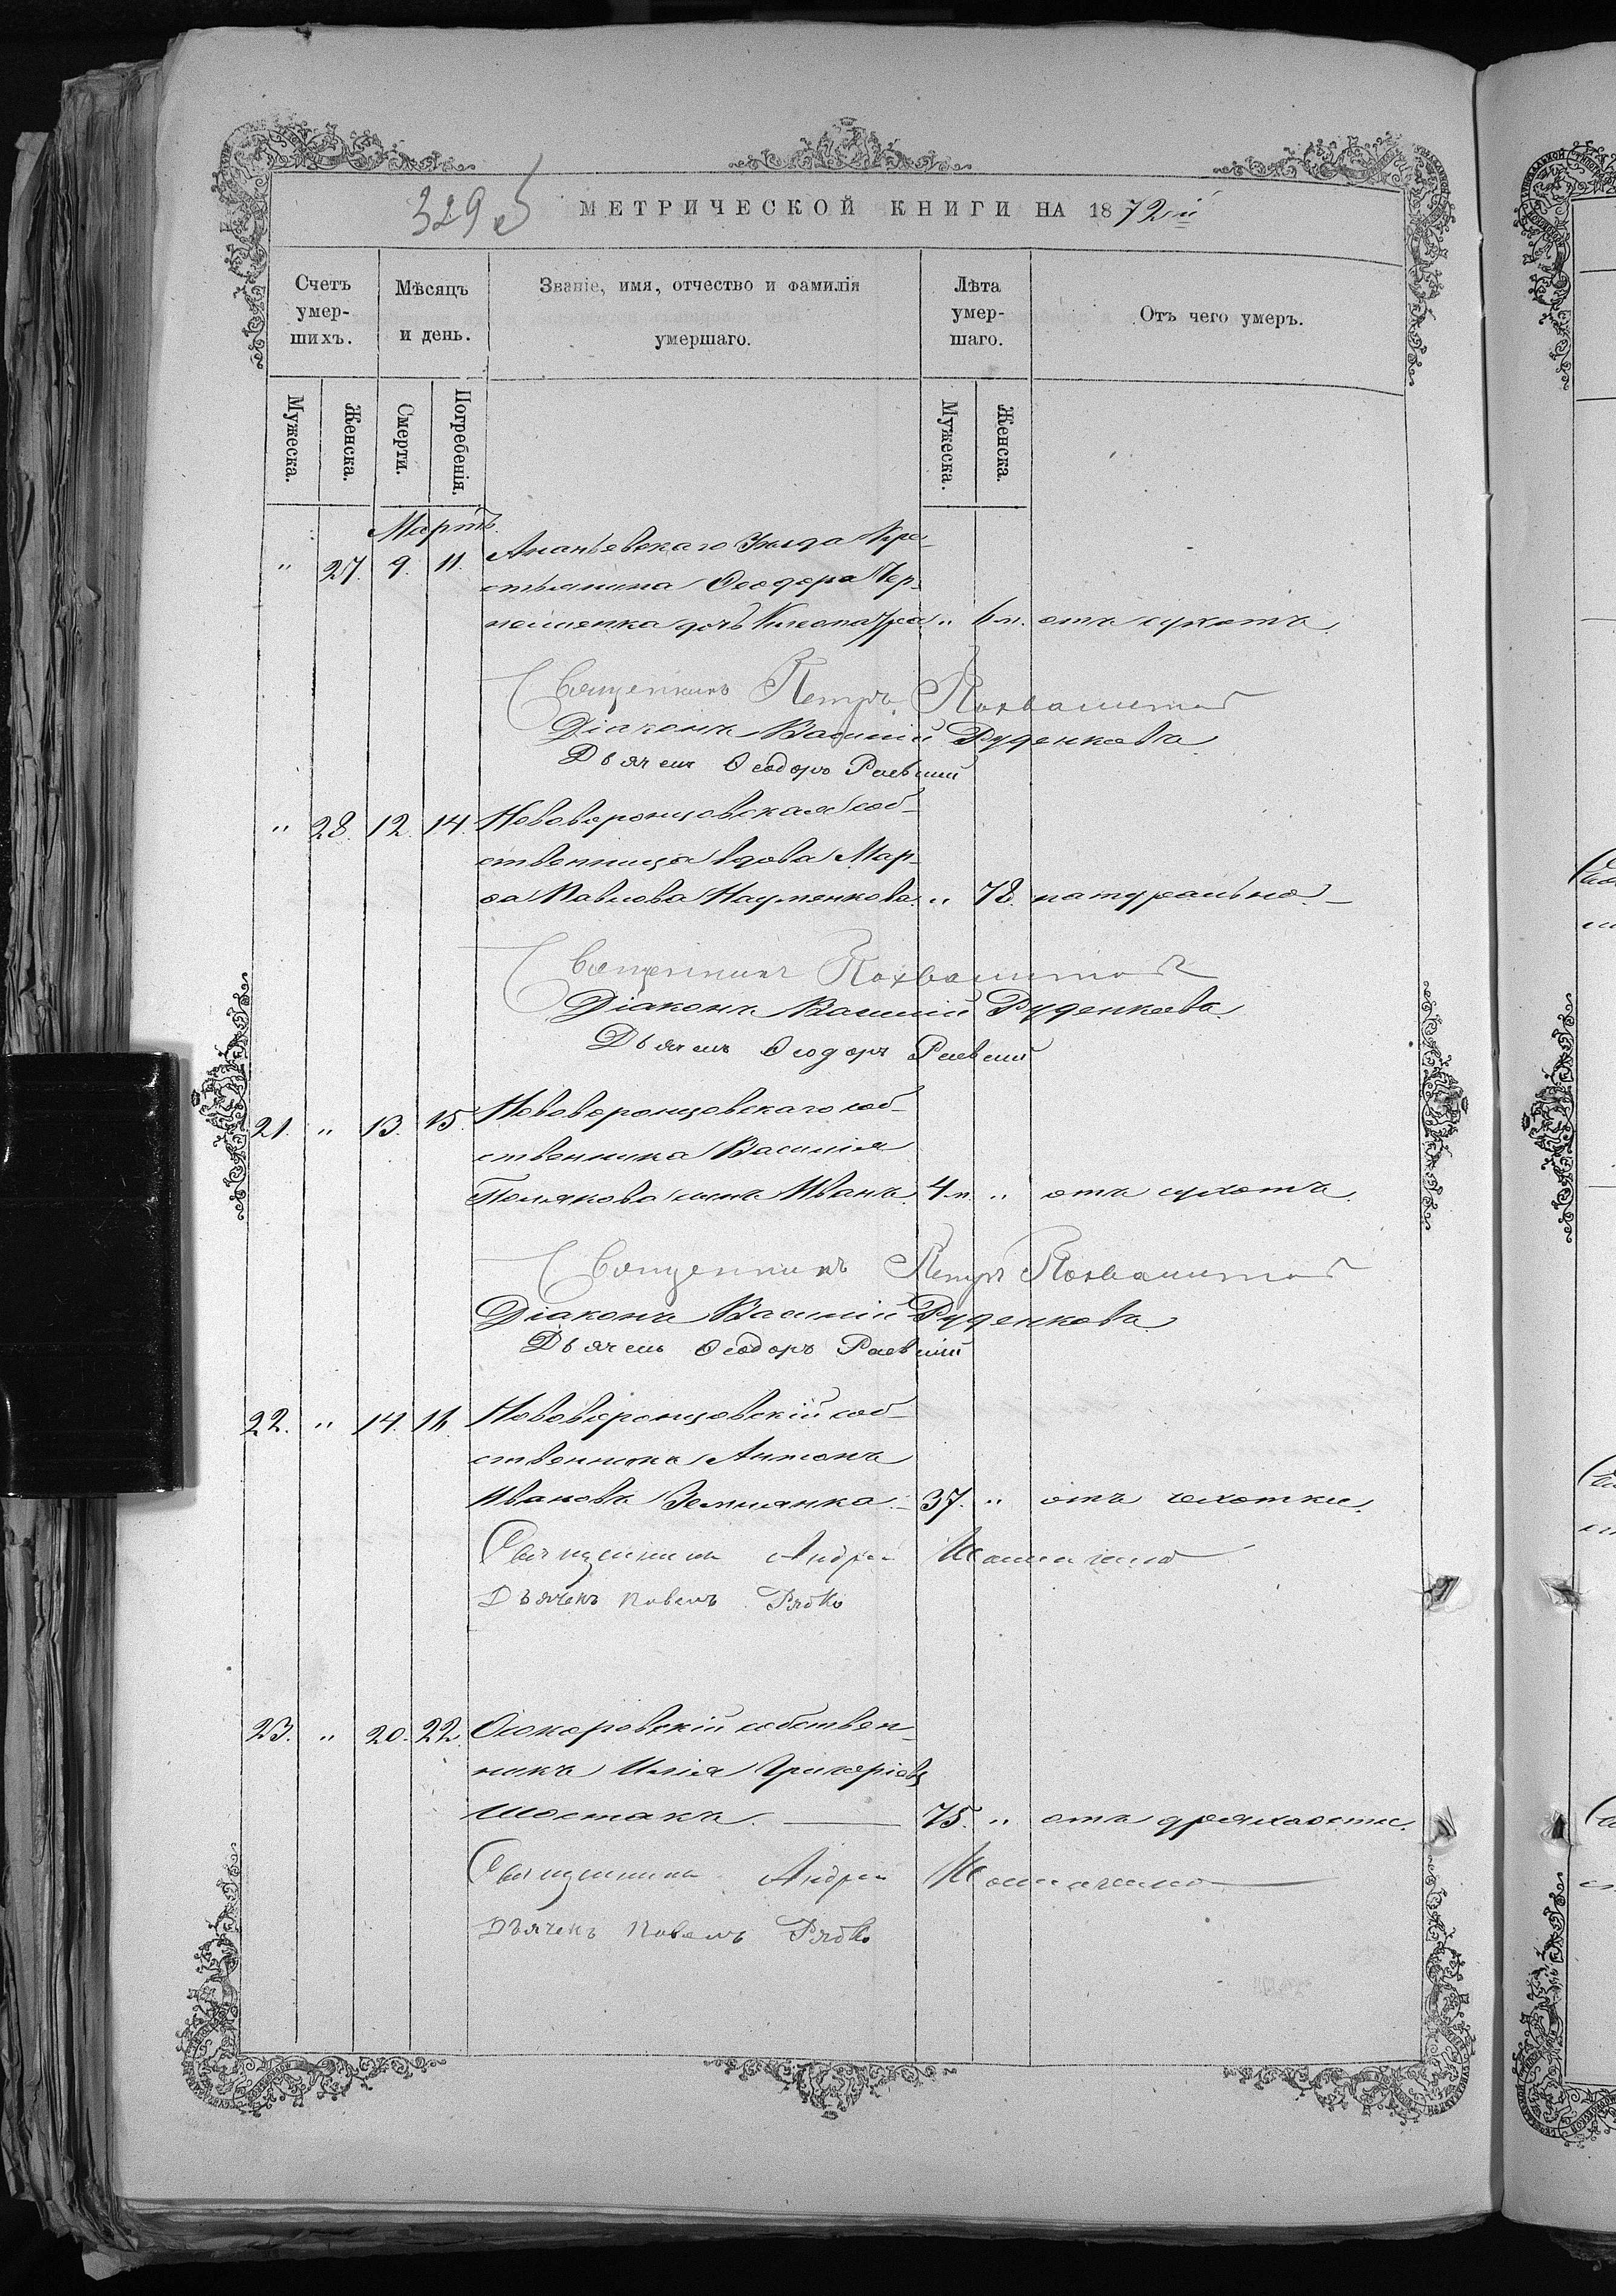 329 об
МЕТРИЧЕСКОЙ КНИГИ НА 1872й
Счетъ умер-шихъ.
Мѣсяцъ и день.
Званіе, имя, отчество и фамилія умершаго.
Лѣта умер-шаго.
Отъ чего умеръ.
Мужеска.
Женска.
Смерти.
Погребенія.
Мужеска.
Женска.
Мартъ.
" 27. 9. 11. Ананьевскаго Уѣзда Кре-
стьянина Ѳеодора Чер-
нешенка дочь Клеопатра " 6 м. отъ сухотъ.
Священникъ Петръ
Діаконъ Василій Руденковъ
Дьячекъ Ѳеодоръ Раевскій
" 28. 12. 14. Нововоронцовская соб-
ственница вдова Мар-
ѳа Павлова Науменкова. " 78. натурально.
Священникъ
Діаконъ Василій Руденковъ
Дьячекъ Ѳеодоръ Раевскій
21. " 13. 15. Нововоронцовскаго соб-
ственника Василія
Полякова сынъ Иванъ. 4 м. " отъ сухотъ.
Священникъ Петръ
Діаконъ Василій Руденковъ
Дьячекъ Ѳеодоръ Раевскій
22. " 14. 16. Нововоронцовскій соб-
ственникъ Антонъ
Ивановъ Землянка. 37. " отъ чахотки.
Священникъ Андрей
Дьячекъ Павелъ Рябко
23. " 20. 22. Осокоровскій собствен-
никъ Илія Григоріевъ
Шостакъ. 75. " отъ дряхлости.
Священникъ Андрей
Дьячекъ Павелъ Рябко